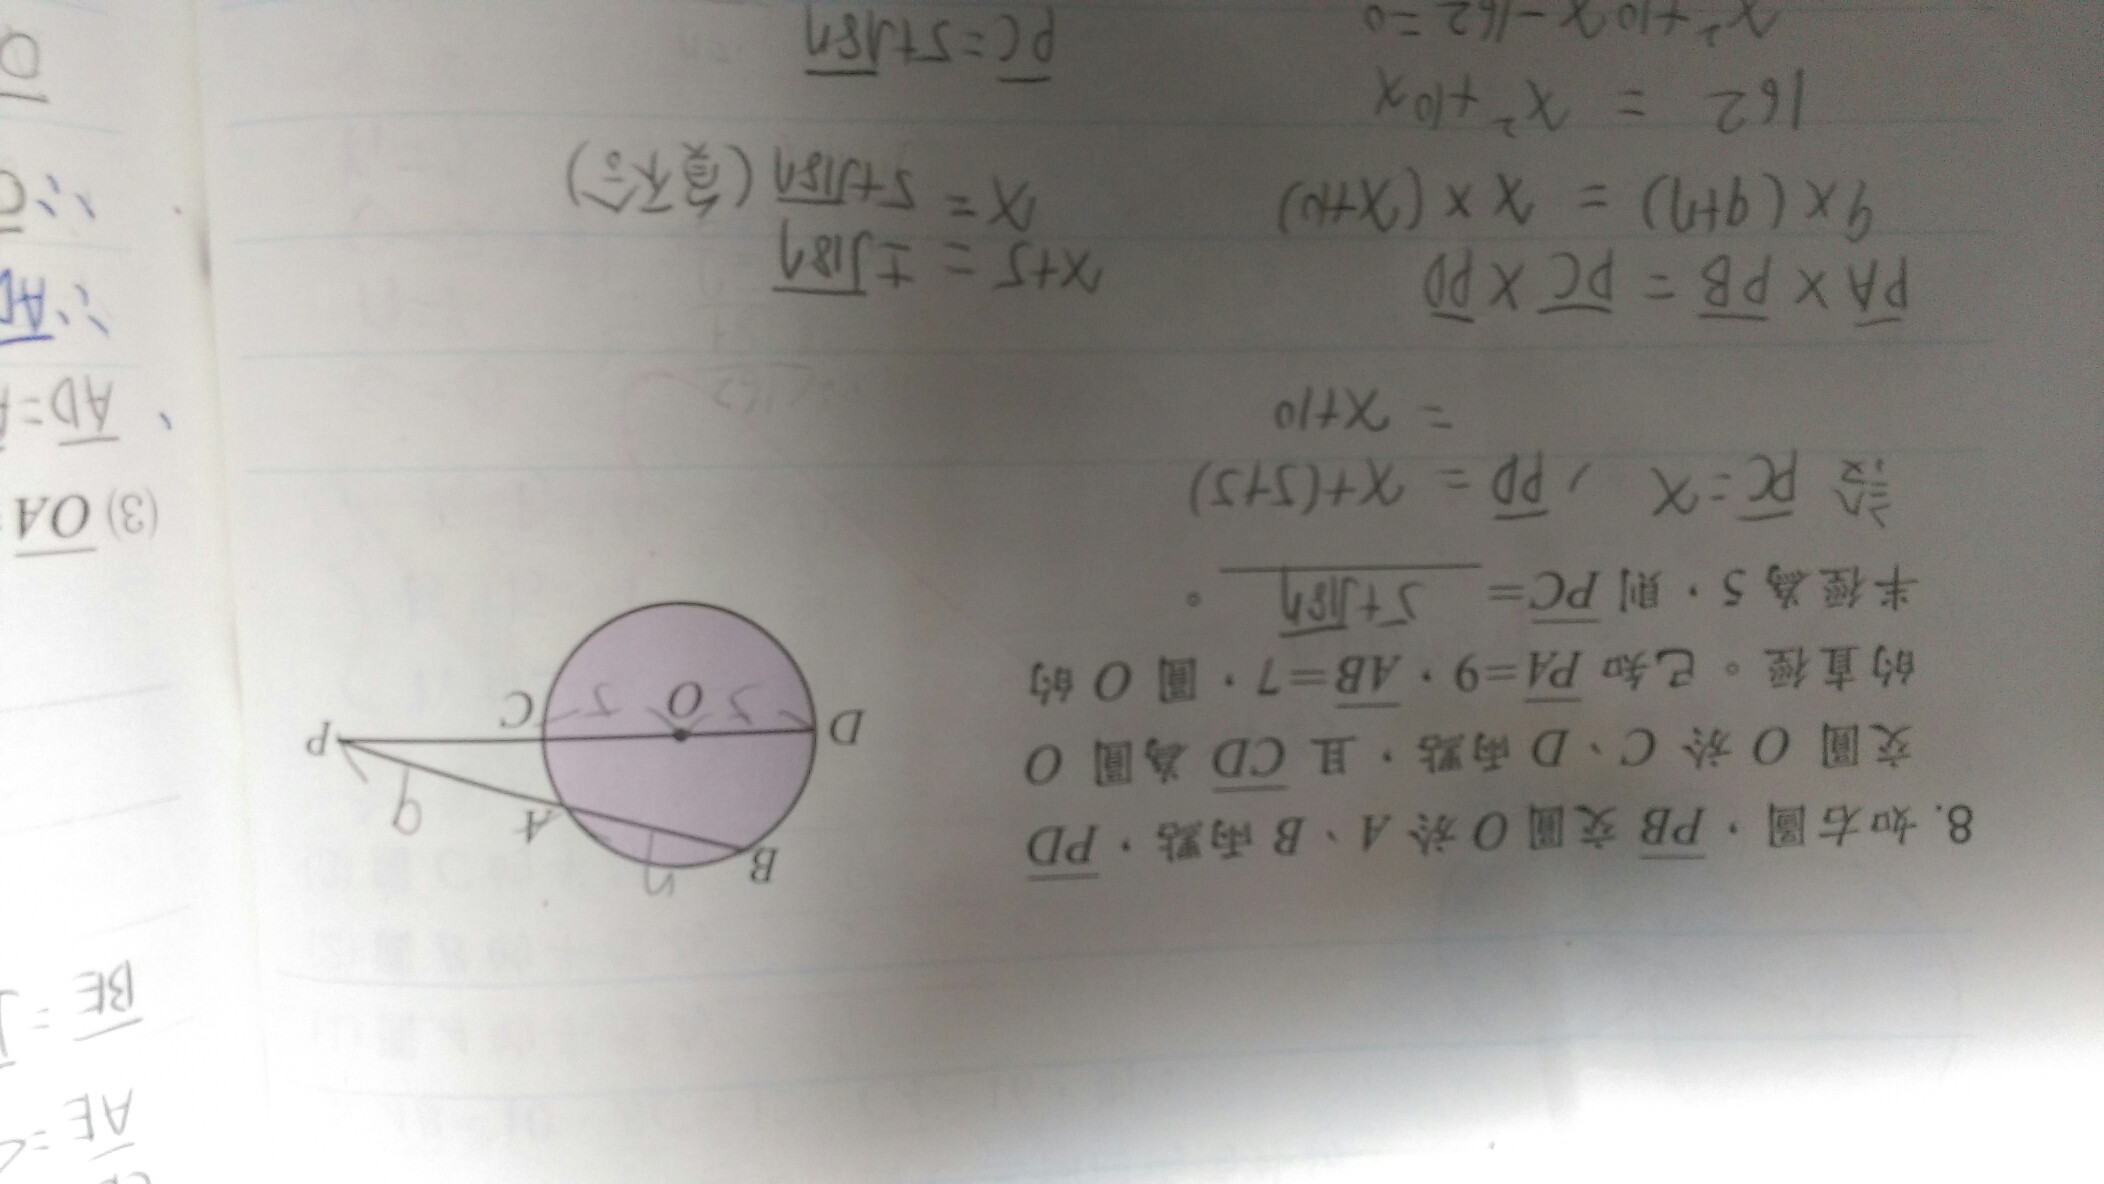 8. 如右圖，PB 交圓 O 於 A、B 兩點，PD
交圓 O 於 C、D 兩點，且 CD 為圓 O
的直徑。已知 PA=9，AB=7，圓 O 的
半徑為 5，則 PC= 5+√187 。
B
7
A
9
D
O
C
P
5
5
設 PC=x , PD = x+(5+5)
= x+10
PA × PB = PC × PD
9×(9+7) = x×(x+10)
162 = x²+10x
x²+10x-162=0
x+5 = ±√187
x = 5+√187 (負不合)
PC=5+√187
AE =
BE =
(3) OA
AD=
∴AD
∴